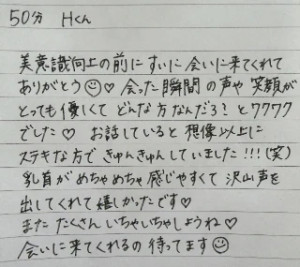 50分 Hくん
美意識向上の前にすいに会いに来てくれて
ありがとう☺♡ 会った瞬間の声や笑顔が
とっても優しくて どんな方なんだろ?とワクワク
でした♡ お話していると想像以上に
ステキな方できゅんきゅんしていました!!!(笑)
乳首がめちゃめちゃ感じやすくて沢山声を
出してくれて嬉しかったです♡
また たくさんいちゃいちゃしようね♡
会いに来てくれるの待ってます☺